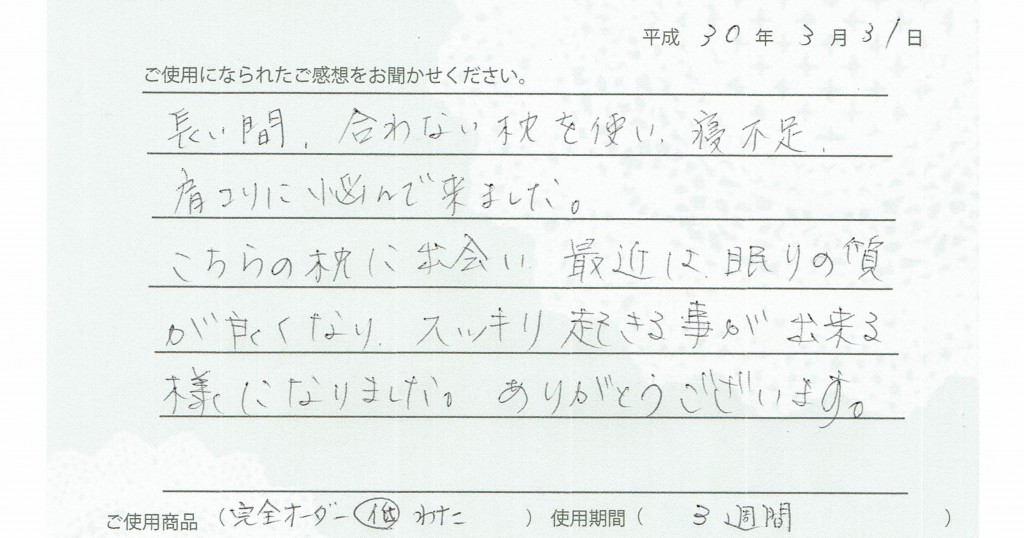 平成 30 年 3 月 31 日
ご使用になられたご感想をお聞かせください。
長い間、合わない枕を使い、寝不足、
肩コリに悩んで来ました。
こちらの枕に出会い 最近は、眠りの質
が良くなり、スッキリ起きる事が出来る
様になりました。ありがとうございます。
ご使用商品 (完全オーダー 低 わた ) 使用期間 ( 3週間 )